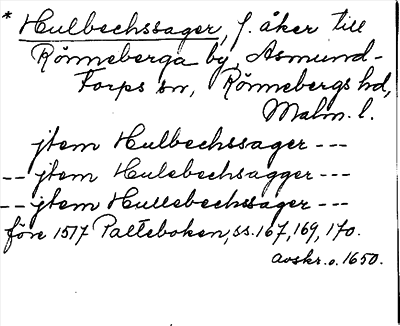 * Hulbechssager, f. åker till
Rönneberga by, Asmund-
torps sn, Rönnebergs hd,
Malm. l.
jtem Hulbechssager ---
-- jtem Hulebechsagger ---
-- jtem Hullebechsager ---
före 1517 Palteboken, ss. 167, 169, 170.
avskr. o. 1650.